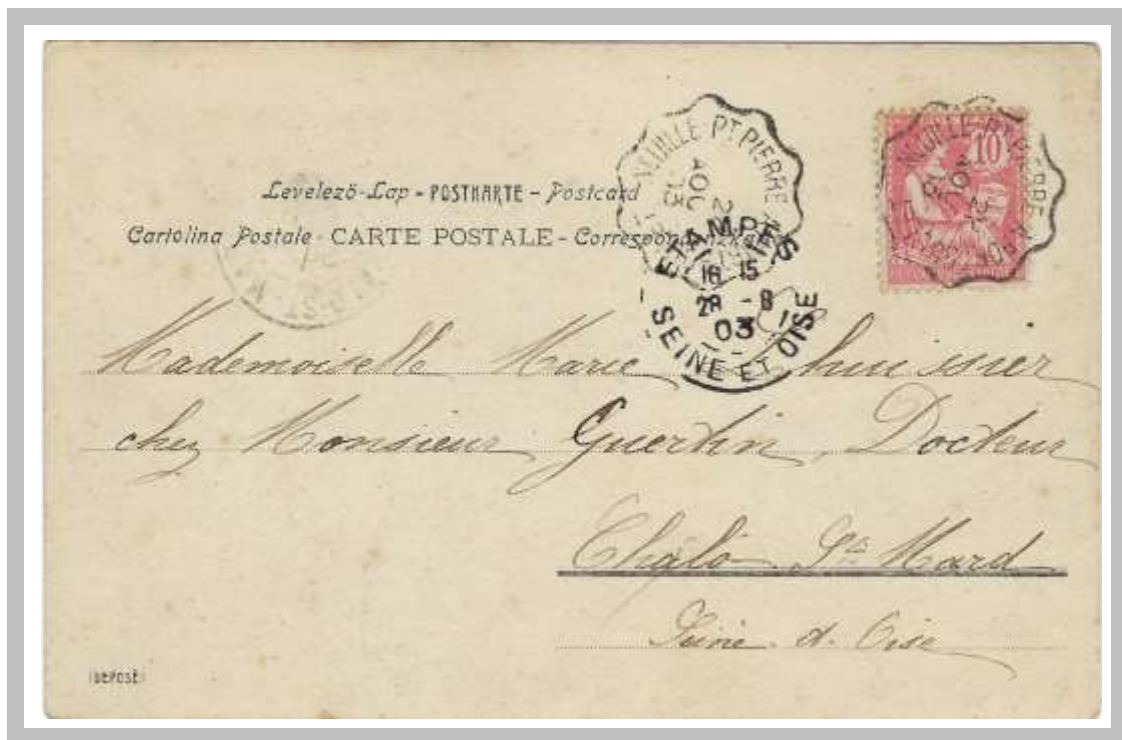 Levelező-Lap - POSTKARTE - Postcard
Cartolina Postale - CARTE POSTALE - Correspondenzkarte
AOUT
ETAMPES
16 15
28 - 8
03
SEINE ET OISE
10
Mademoiselle Marie huissier
chez Monsieur Guertin, Docteur
Chalo St Mard
Seine et Oise
(DÉPOSÉ)